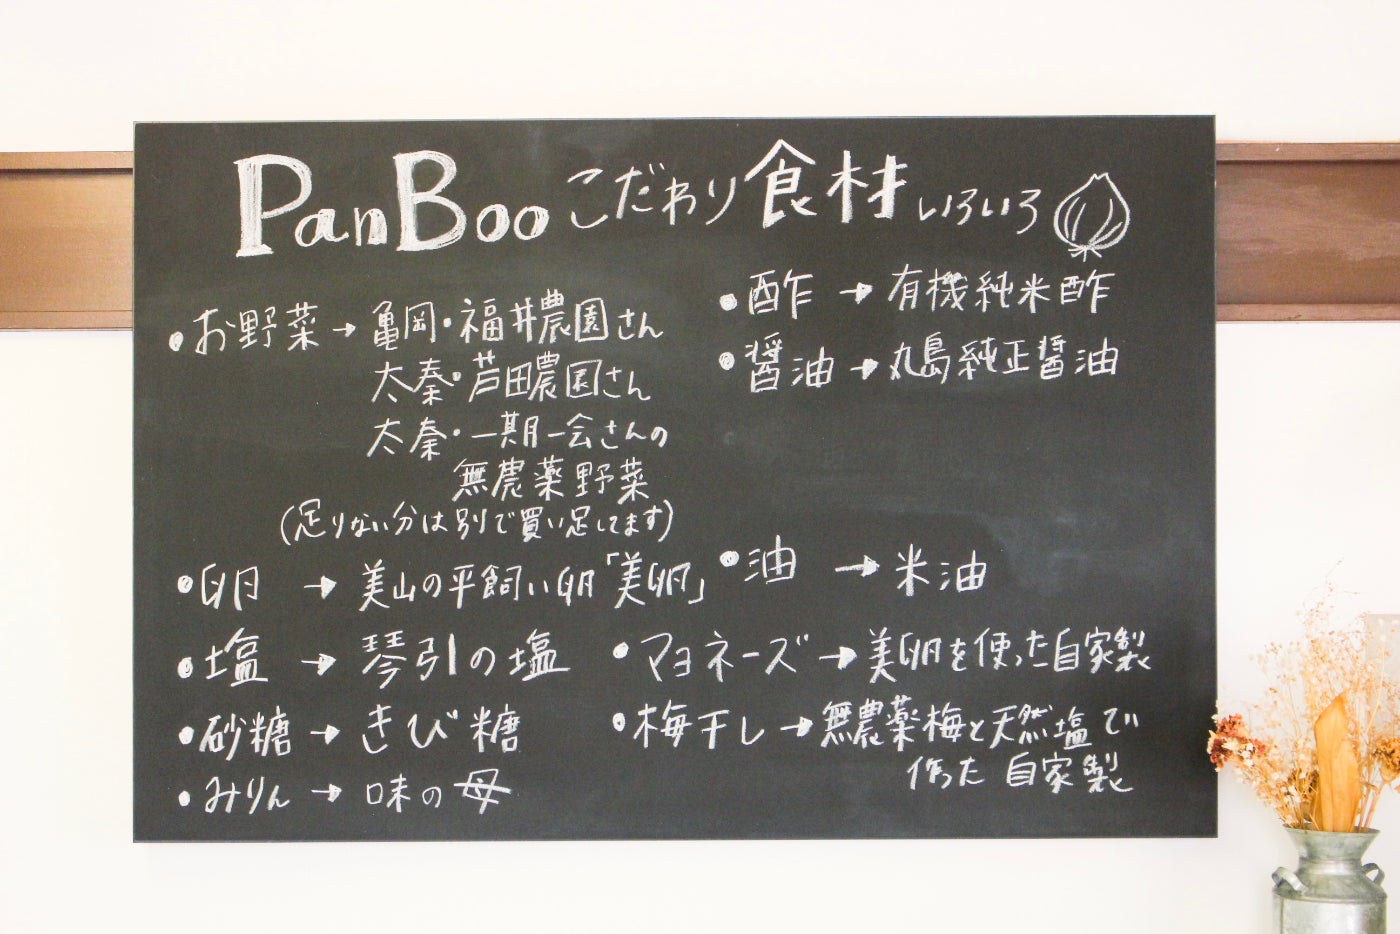 PanBoo こだわり食材いろいろ
・お野菜→亀岡・福井農園さん
太秦・芦田農園さん
太秦・一期一会さんの
無農薬野菜
(足りない分は別で買い足してます)
・卵→美山の平飼い卵「美卵」
・塩→琴引の塩
・砂糖→きび糖
・みりん→味の母
・酢→有機純米酢
・醤油→丸島純正醤油
・油→米油
・マヨネーズ→美卵を使った自家製
・梅干し→無農薬梅と天然塩で
作った自家製